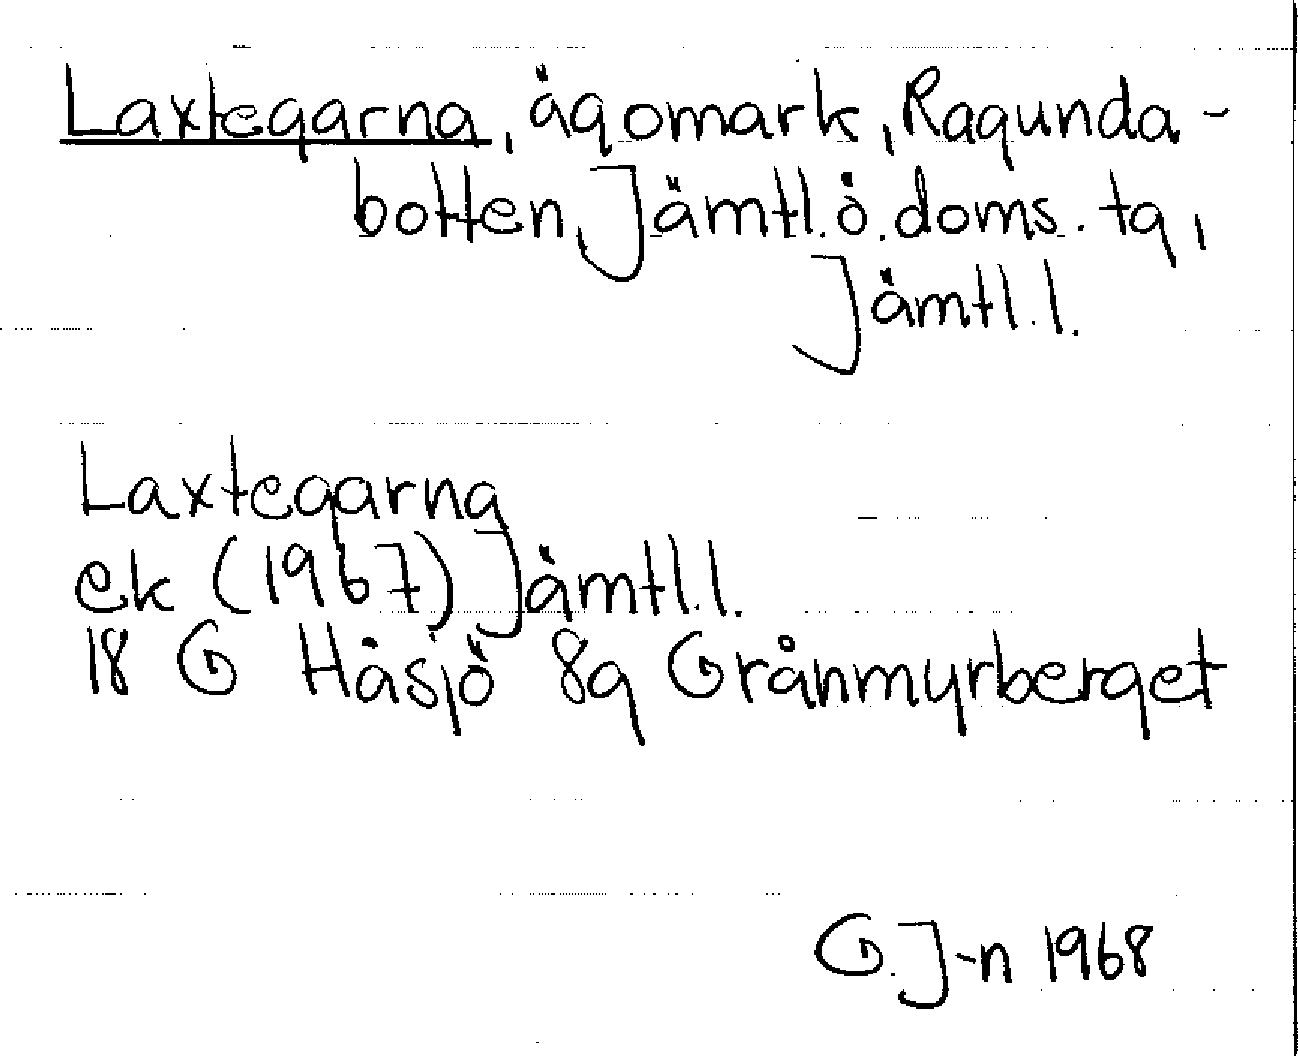 Laxtegarna, ägomark, Ragunda-
botten, Jämtl.ö.doms.tg,
Jämtl.l.
Laxtegarna
ek (1967) Jämtl.l.
18 G Håsjö 8g Grånmyrberget
G.J-n 1968